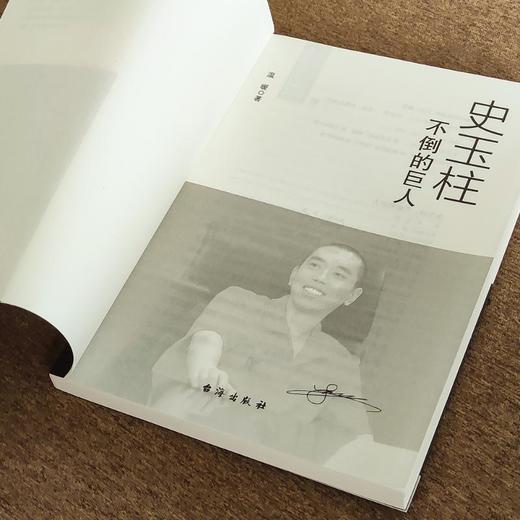 史玉柱
不倒的巨人
温暖◎著
台海出版社